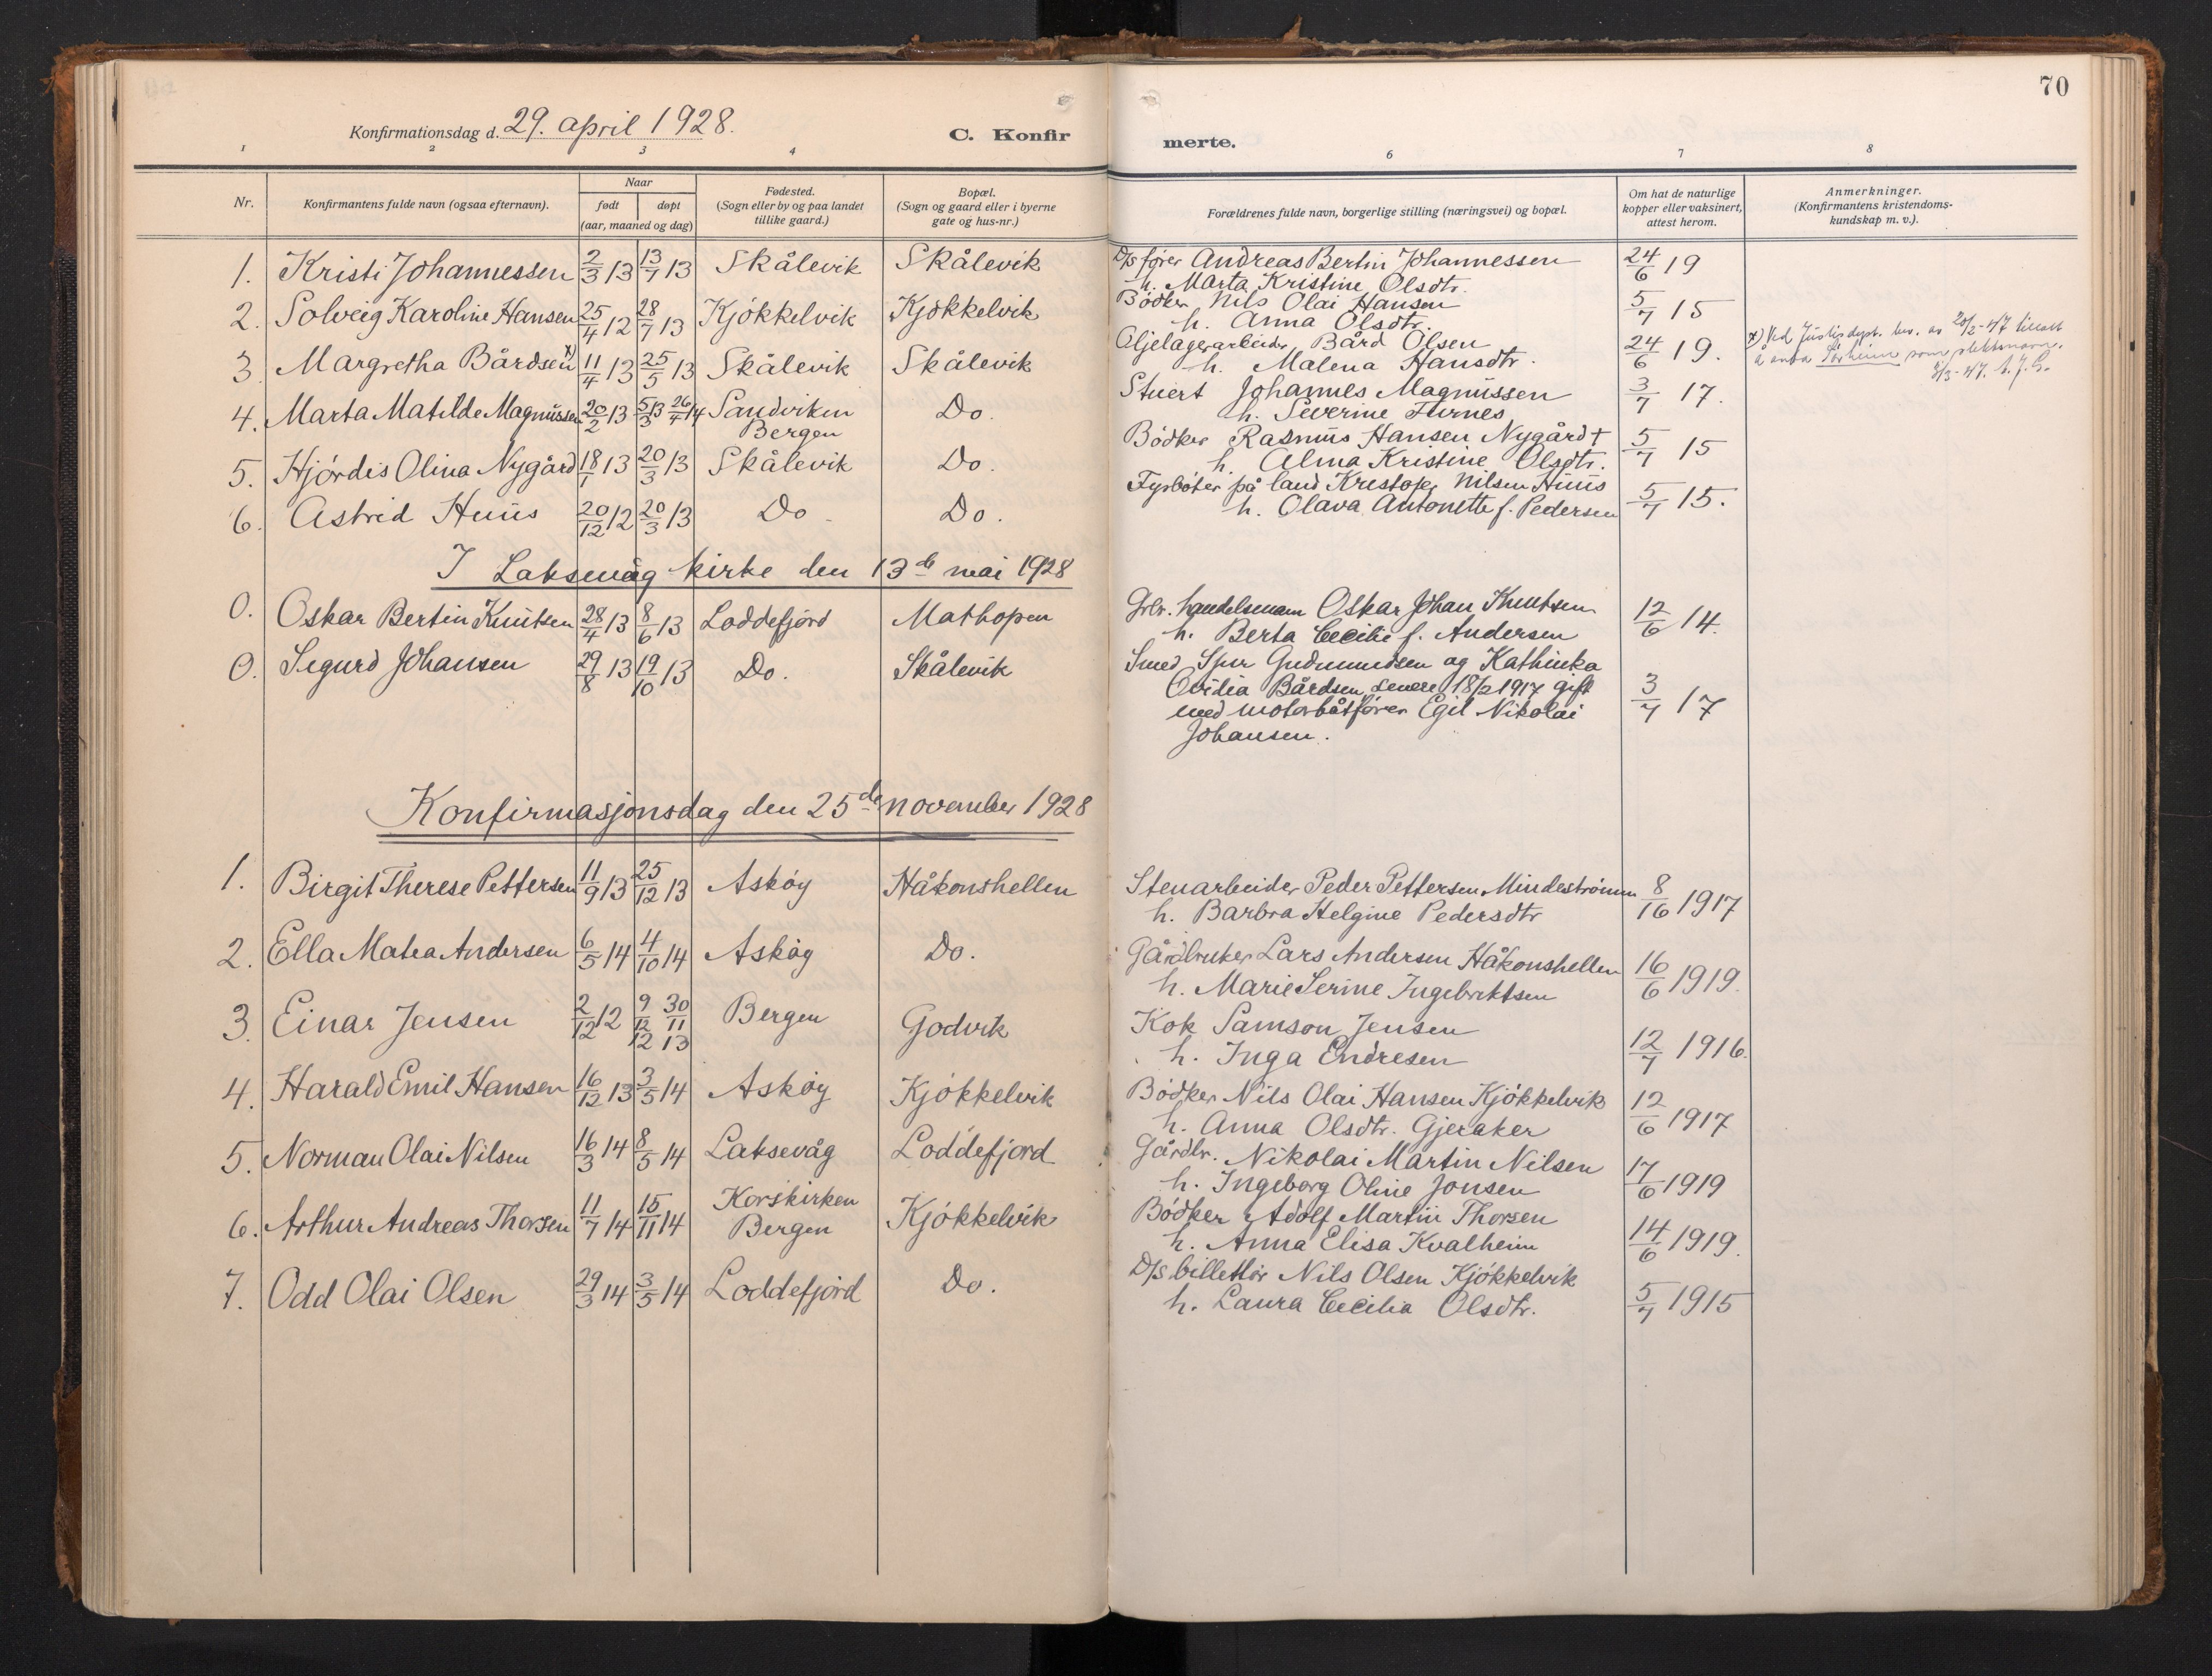 70
Konfirmationsdag d. 29. april 1928.
C. Konfirmerte.
1 2 3 4 6 7 8
Nr.
Konfirmantens fulde navn (ogsaa efternavn).
Naar
født døpt
(aar, maaned og dag)
Fødested.
(Sogn eller by og paa landet
tillike gaard.)
Bopæl.
(Sogn og gaard eller i byerne
gate og hus-nr.)
Forældrenes fulde navn, borgerlige stilling (næringsvei) og bopæl.
Om hat de naturlige
kopper eller vaksinert,
attest herom.
Anmerkninger.
(Konfirmantens kristendoms-
kundskap m. v.).
1. Kristi Johannessen 2/3 13 13/7 13 Skålevik Skålevik D/S fører Andreas Bertin Johannessen 24/6 19
h. Marta Kristine Olsdtr.
2. Solveig Karoline Hansen 25/4 12 28/7 13 Kjøkkelvik Kjøkkelvik Bødker Nils Olai Hansen 5/7 15
h. Anna Olsdtr.
3. Margretha Bårdsen x) 11/4 13 25/5 13 Skålevik Skålevik Oljelagerarbeider Bård Olsen 24/6 19.
h. Malena Hansdtr.
x) Ved Justisdept. bev. av 20/2-47 tillatt
å anta som slektsnavn.
4. Marta Matilde Magnussen 20/2 13 5/3 13 26/4 14 Sandviken Do. Stuert Johannes Magnussen 3/7 17.
Bergen h. Severine Furnes
5. Hjørdis Olina Nygård 18/1 13 20/3 13 Skålevik Do. Bødker Rasmus Hansen Nygård † 5/7 15
h. Alma Kristine Olsdtr.
6. Astrid Huus 20/12 12 20/3 13 Do Do. Fyrbøter på land Kristofer Nilsen Huus 5/7 15.
h. Olava Antonette f. Pedersen
I Laksevåg kirke den 13de mai 1928
0. Oskar Bertin Knutsen 28/4 13 8/6 13 Loddefjord Mathopen Grbr. handelsmann Oskar Johan Knutsen 12/6 14.
h. Berta Cecilie f. Andersen
0. Sigurd Johansen 29/8 13 19/10 13 Do. Skålevik Smed Gudmundsen og Kathinka
Ovidia Bårdsen, senere 18/2 1917 gift 3/7 17
med motorbåtfører Egil Nikolai
Johansen.
Konfirmasjonsdag den 25de november 1928
1. Birgit Therese Pettersen 11/9 13 25/12 13 Askøy Håkonshellen Stenarbeider Peder Pettersen Mindestrømm 8/16 1917
h. Barbra Helgine Pedersdtr
2. Ella Matea Andersen 6/5 14 4/10 14 Askøy Do. Gårdbruker Lars Andersen Håkonshellen 16/6 1919.
h. Marie Serine Ingebriktsen
3. Einar Jensen 2/12 12 9/12 12 30/11 13 Bergen Godvik Kok Samson Jensen
h. Inga Endresen 12/7 1916.
4. Harald Emil Hansen 16/12 13 3/5 14 Askøy Kjøkkelvik Bødker Nils Olai Hansen Kjøkkelvik 12/6 1917
h. Anna Olsdtr. Gjeraker
5. Norman Olai Nilsen 16/3 14 8/5 14 Laksevåg Loddefjord Gårdbr. Nikolai Martin Nilsen 17/6 1919
h. Ingeborg Oline Jonsen
6. Arthur Andreas Thorsen 11/7 14 15/11 14 Korskirken Kjøkkelvik Bødker Adolf Martin Thorsen 14/6 1919.
Bergen h. Anna Elisa Kvalheim
7. Odd Olai Olsen 29/3 14 3/5 14 Loddefjord Do. D/S billettør Nils Olsen Kjøkkelvik
h. Laura Cecilia Olsdtr. 5/7 1915